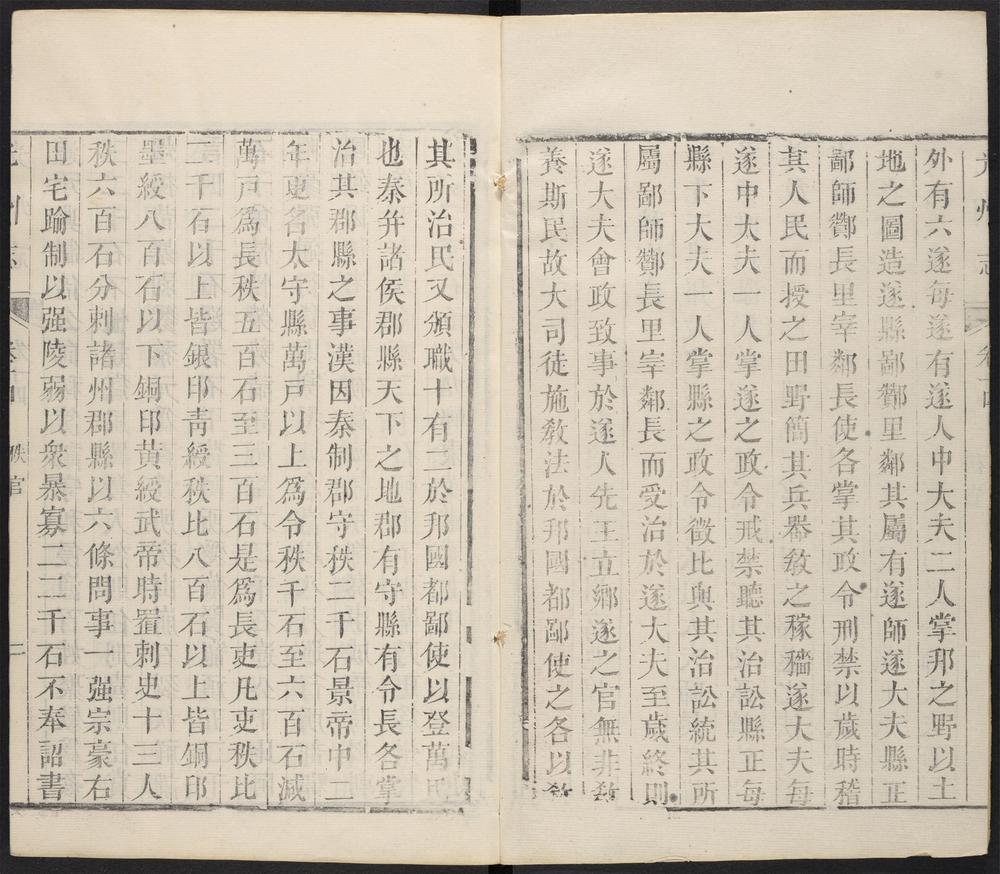 州志 卷十四
外有六遂每遂有遂人中大夫二人掌邦之野以土
地之圖造遂縣鄙酇里鄰其屬有遂師遂大夫縣正
鄙師酇長里宰鄰長使各掌其政令刑禁以歲時稽
其人民而授之田野簡其兵器敎之稼穡遂大夫每
遂中大夫一人掌遂之政令戒禁聽其治訟縣正每
縣下大夫一人掌縣之政令徵比與其治訟統其所
屬鄙師酇長里宰鄰長而受治於遂大夫至歲終則
遂大夫會政致事於遂人先王立鄉遂之官無非敎
養斯民故大司徒施敎法於邦國都鄙使之各以敎
其所治民又頒職十有二於邦國都鄙使以登萬民
也秦幷諸侯郡縣天下之地郡有守縣有令長各掌
治其郡縣之事漢因秦制郡守秩二千石景帝中二
年更名太守縣萬戸以上爲令秩千石至六百石減
萬戸爲長秩五百石至三百石是爲長吏凡吏秩比
二千石以上皆銀印靑綬秩比八百石以上皆銅印
墨綬八百石以下銅印黃綬武帝時置刺史十三人
秩六百石分刺諸州郡縣以六條問事一强宗豪右
田宅踰制以强陵弱以衆暴寡二二千石不奉詔書
州志 秩官 二